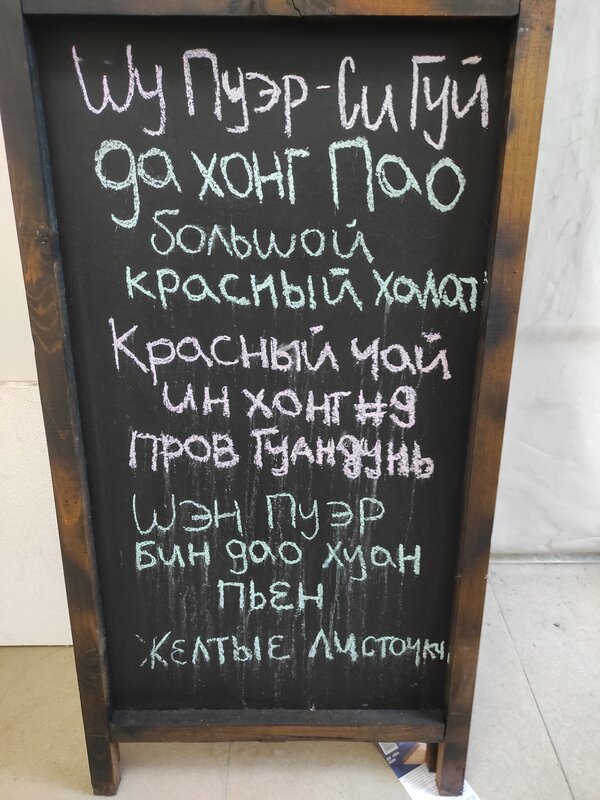 Шу Пуэр-Си Гуй
да хонг Пао
большой
красный халат
Красный чай
ин хонг #9
пров Гуандунь
шэн пуэр
бин дао хуан
пьен
желтые листочки